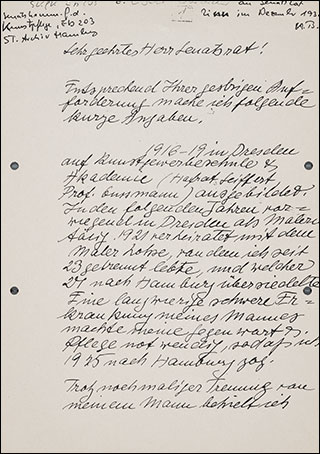 an Senatsrat
im Dezember 193
Kunstpflege, Eb 203
St. Archiv Hamburg
Sehr geehrter Herr Senatsrat!
Entsprechend Ihrer gestrigen Auf-
forderung mache ich folgende
kurze Angaben.
1916-19 in Dresden
auf Kunstgewerbeschule &
Akademie (Hofrat Seiffert
Prof. Gussmann) ausgebildet
In den folgenden Jahren vor-
wiegend in Dresden als Malerin
tätig. 1921 verheiratet mit dem
Maler Lohse, von dem ich seit
23 getrennt lebte, und welcher
27 nach Hamburg übersiedelte
Eine langwierige schwere Er-
krankung meines Mannes
machte meine Gegenwart &
Pflege notwendig, sodass ich
1925 nach Hamburg zog.
Trotz nochmaliger Trennung von
meinem Mann behielt ich